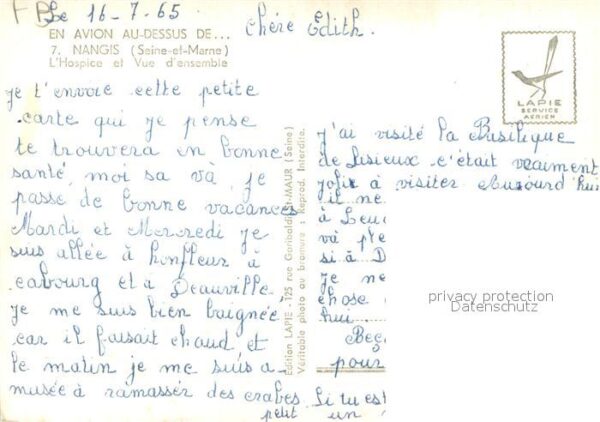 Le 16-7-65
EN AVION AU-DESSUS DE...
7. NANGIS (Seine-et-Marne)
L'Hospice et Vue d'ensemble
Chère Edith.
LAPIE
SERVICE
AERIEN
je t'envoie cette petite
carte qui je pense
te trouvera en bonne
santé, moi sa và, je
passe de bonne vacances
Mardi et Mercredi je
suis allée à honfleur à
cabourg et à Deauville.
je me suis bien baignée
car il faisait chaud et
le matin je me suis a-
musée à ramasser des crabes. Si tu es
petit un
Edition LAPIE - 125 rue Garibaldi St-MAUR (Seine)
Véritable photo au bromure : Reprod. Interdite.
j'ai visité la Basilique
de Lisieux c'était vraiment
jolie à visiter Aujourd'hui
il ne
à
và
si à
je ne
chose
hui.
pour
privacy protection
Datenschutz